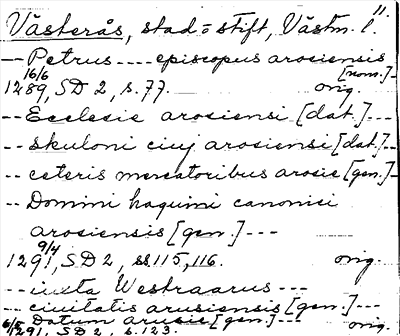 11.
Västerås, stad o stift, Västm. l.
-- Petrus ---- episcopus arosiensis
[nom.] --
16/6
1289, SD 2, s. 77. orig.
-- Ecclesie arosiensi [dat.] ---
-- Skuloni ciuj arosiensi [dat.] --
-- ceteris mercatoribus arosie [gen.] --
-- Domini haquini canonici
arosiensis [gen.] ---
9/4
1291, SD 2, ss. 115, 116. orig.
-- iuxta Westraarus ---
-- ciuitatis arusiensis [gen.] ---
-- Datum arosie [gen.] ---
6/5 1291, SD 2, s. 123. orig.